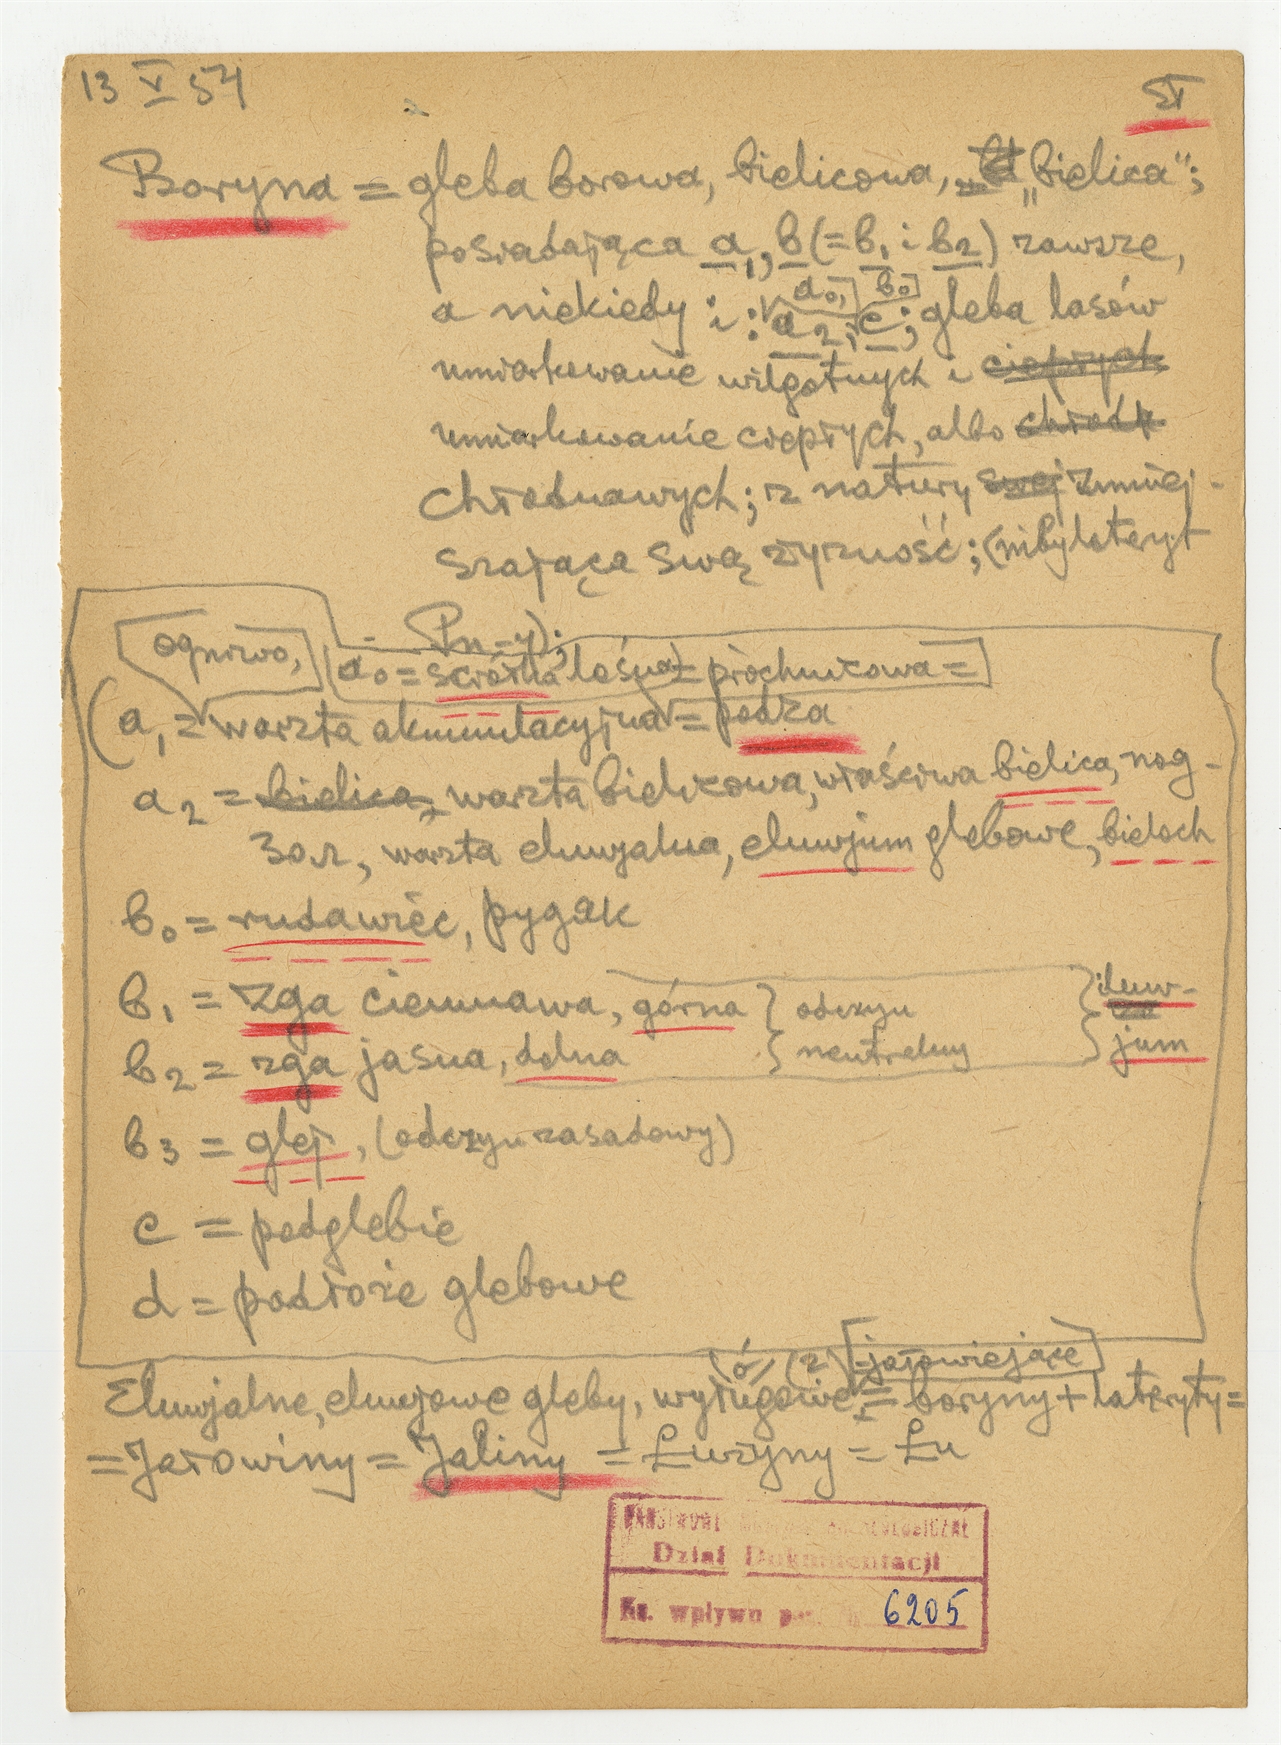 13 V 54
ST
Boryna = gleba borowa, bielicowa, „bielica";
posiadająca a₁, b (= b₁ i b₂) zawsze,
a niekiedy i: a₀, a₂, b₀, c; gleba lasów
umiarkowanie wilgotnych i ciepłych
umiarkowanie ciepłych, albo chłodn
chłodnawych; z natury swej zmniej-
szająca swą żyzność; (niby lateryt
- Pn-y);
ogniwo,
a₀ = ściółka leśna = próchnicowa =
(a₁ = warzta akumulacyjna = podza
a₂ = bielica, warzta bielicowa, właściwa bielica, nog-
zoł, warzta eluwjalna, eluwjum glebowe, bieloch
b₀ = rudawiec, pygak
b₁ = rzga ciemnawa, górna } odczyn } iluw-
b₂ = rzga jasna, dolna } neutralny } jum
b₃ = glej, (odczyn zasadowy)
c = podglebie
d = podłoże glebowe
(ó) (z) [jałowiejące]
Eluwjalne, eluwjowe gleby, wyługowie, = boryny + lateryty =
= Jałowiny = Jaliny = Łużyny = Łu
Dział Dokumentacji
Ks. wpływu poz. 6205